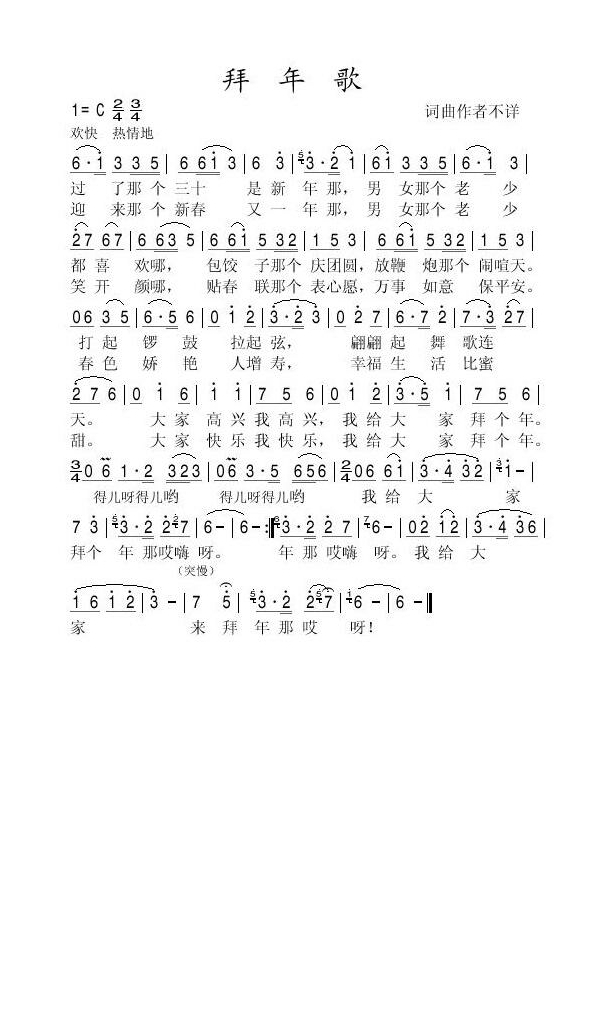 拜 年 歌
1= C 2/4 3/4 词曲作者不详
欢快 热情地
6·i 3 3 5 | 6 6i 3 | 6 3 | 3·2 i | 6i 3 5 | 6·i 3 |
过 了那 个 三十 是 新 年 那, 男 女那 个 老 少
迎 来那 个 新春 又 一 年 那, 男 女那 个 老 少
27 67 | 6 63 5 | 6 6i 5 32 | 1 5 3 | 6 6i 5 32 | 1 5 3 |
都 喜 欢哪, 包饺 子那个 庆团圆, 放鞭 炮那个 闹喧天。
笑 开 颜哪, 贴春 联那个 表心愿, 万事 如意 保平安。
06 3 5 | 6·5 6 | 0 i 2 | 3·2 3 | 027 6 | 7·3 27 |
打 起 锣 鼓 拉起 弦, 翩翩 起 舞 歌连
春 色 娇 艳 人增 寿, 幸福 生 活 比蜜
2 7 6 | 0 i 6 | i i 7 | 7 5 6 | 0 i 2 | 3·5 i | 7 5 6 |
天。 大 家 高 兴 我 高 兴, 我 给 大 家 拜 个 年。
甜。 大 家 快 乐 我 快 乐, 我 给 大 家 拜 个 年。
3/4 0 6 1·2 323 | 06 3·5 656 | 2/4 06 6i | 3·4 32 | 3 i - |
得儿呀得儿哟 得儿呀得儿哟 我 给 大 家
7 3 | 3·2 2·7 | 6 - | 6 - :| 3·2 2·7 | 6 - | 02 i2 | 3·4 36 |
拜个 年 那哎嗨 呀。 年 那 哎嗨 呀。 我 给 大
(突慢)
i 6 i 2 | 3 - | 7 5 | 3·2 2 7 | 6 - | 6 - ‖
家 来 拜 年 那 哎 呀!